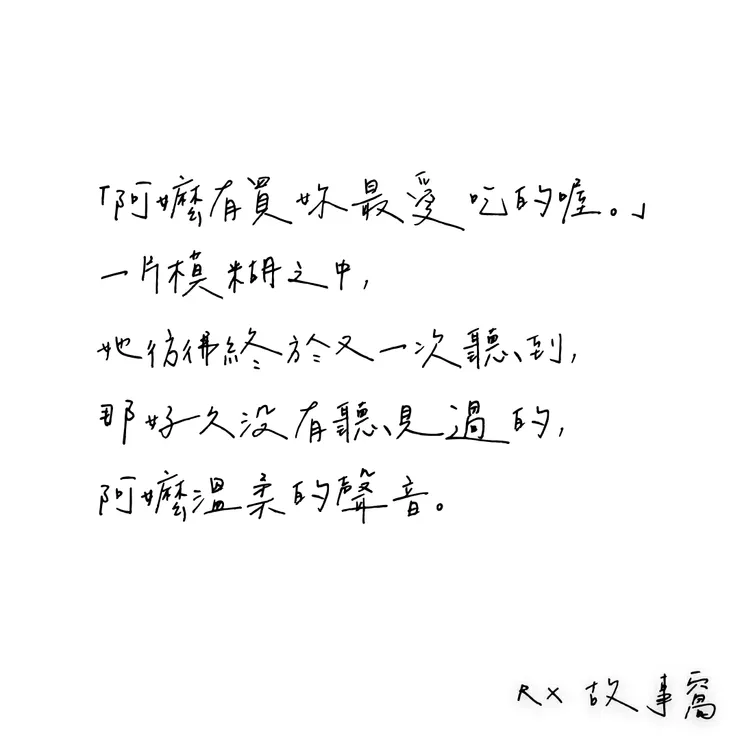 「阿嬤有買妳最愛吃的喔。」
一片模糊之中,
她彷彿終於又一次聽到,
那好久沒有聽見過的,
阿嬤溫柔的聲音。
RX 故事窩